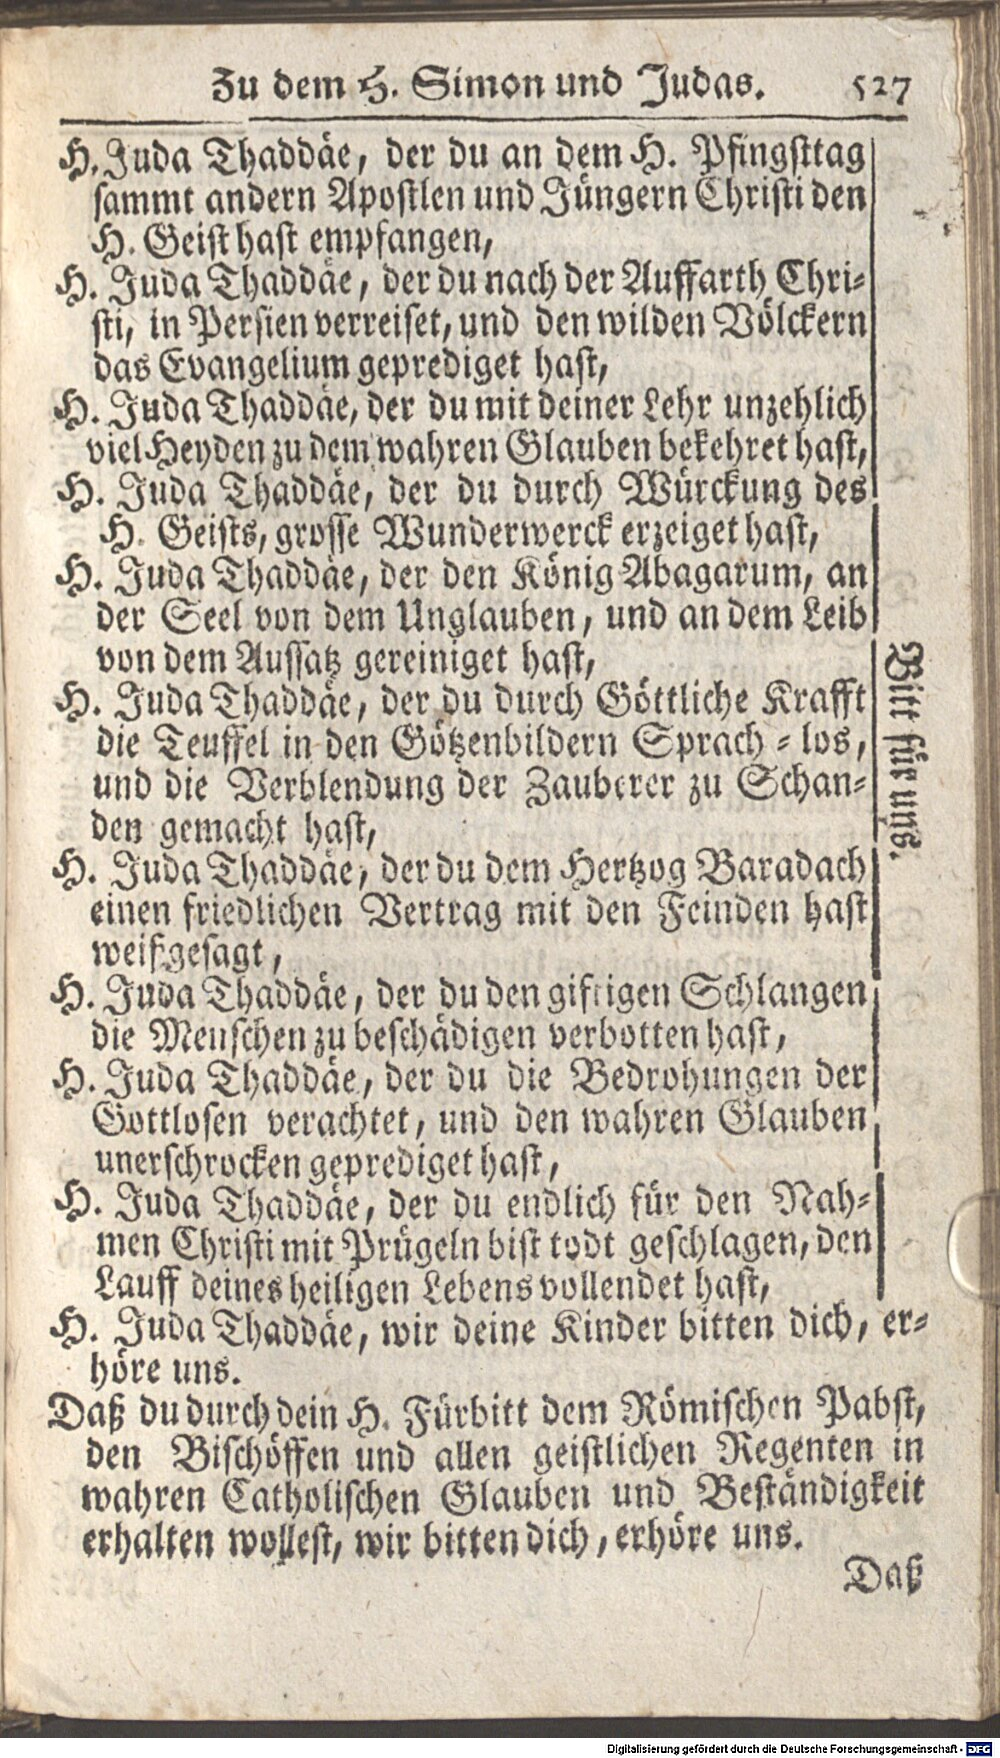 Zu dem H. Simon und Judas. 527
H. Juda Thaddäe, der du an dem H. Pfingsttag
sammt andern Apostlen und Jüngern Christi den
H. Geist hast empfangen,
H. Juda Thaddäe, der du nach der Auffarth Chri-
sti, in Persien verreiset, und den wilden Völckern
das Evangelium geprediget hast,
H. Juda Thaddäe, der du mit deiner Lehr unzehlich
viel Heyden zu dem wahren Glauben bekehret hast,
H. Juda Thaddäe, der du durch Würckung des
H. Geists, grosse Wunderwerck erzeiget hast,
H. Juda Thaddäe, der den König Abagarum, an
der Seel von dem Unglauben, und an dem Leib
von dem Aussatz gereiniget hast,
H. Juda Thaddäe, der du durch Göttliche Krafft
die Teuffel in den Götzenbildern Sprach-los,
und die Verblendung der Zauberer zu Schan-
den gemacht hast,
H. Juda Thaddäe, der du dem Hertzog Baradach
einen friedlichen Vertrag mit den Feinden hast
weißgesagt,
H. Juda Thaddäe, der du den giftigen Schlangen
die Menschen zu beschädigen verbotten hast,
H. Juda Thaddäe, der du die Bedrohungen der
Gottlosen verachtet, und den wahren Glauben
unerschrocken geprediget hast,
H. Juda Thaddäe, der du endlich für den Nah-
men Christi mit Prügeln bist todt geschlagen, den
Lauff deines heiligen Lebens vollendet hast,
Bitt für uns.
H. Juda Thaddäe, wir deine Kinder bitten dich, er-
höre uns.
Daß du durch dein H. Fürbitt dem Römischen Pabst,
den Bischöffen und allen geistlichen Regenten in
wahren Catholischen Glauben und Beständigkeit
erhalten wollest, wir bitten dich, erhöre uns.
Daß
Digitalisierung gefördert durch die Deutsche Forschungsgemeinschaft - DFG